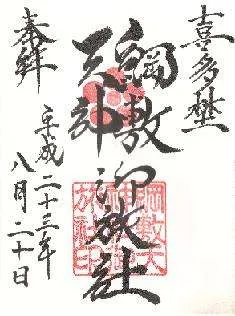 喜多埜
綱敷
天神
御旅社
奉拝
平成二十三年
八月二十日
綱敷天
神御
旅社印